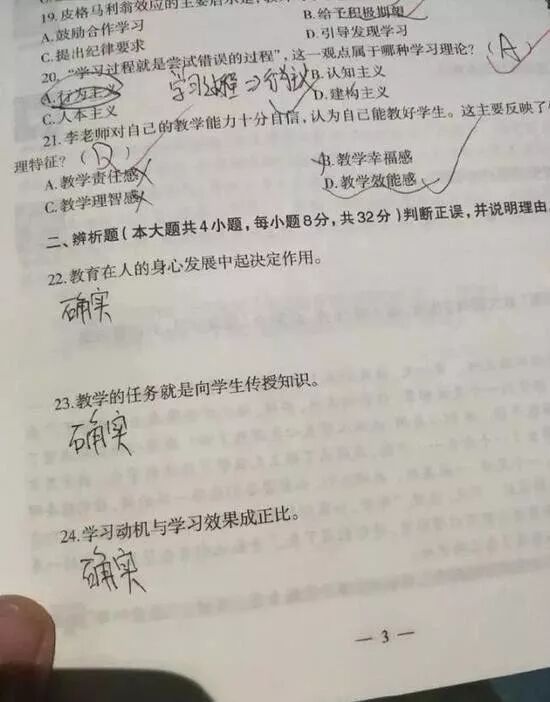 19.皮格马利翁效应的主要启示是
A.鼓励合作学习 B.给予积极期望
C.提出纪律要求 D.引导发现学习
20.“学习过程就是尝试错误的过程”，这一观点属于哪种学习理论？（A）
A.行为主义 学习过程 B.认知主义
C.人本主义 D.建构主义
21.李老师对自己的教学能力十分自信，认为自己能教好学生。这主要反映了
理特征？（D）
A.教学责任感 B.教学幸福感
C.教学理智感 D.教学效能感
二、辨析题（本大题共4小题，每小题8分，共32分）判断正误，并说明理由
22.教育在人的身心发展中起决定作用。
确实
23.教学的任务就是向学生传授知识。
确实
24.学习动机与学习效果成正比。
确实
— 3 —